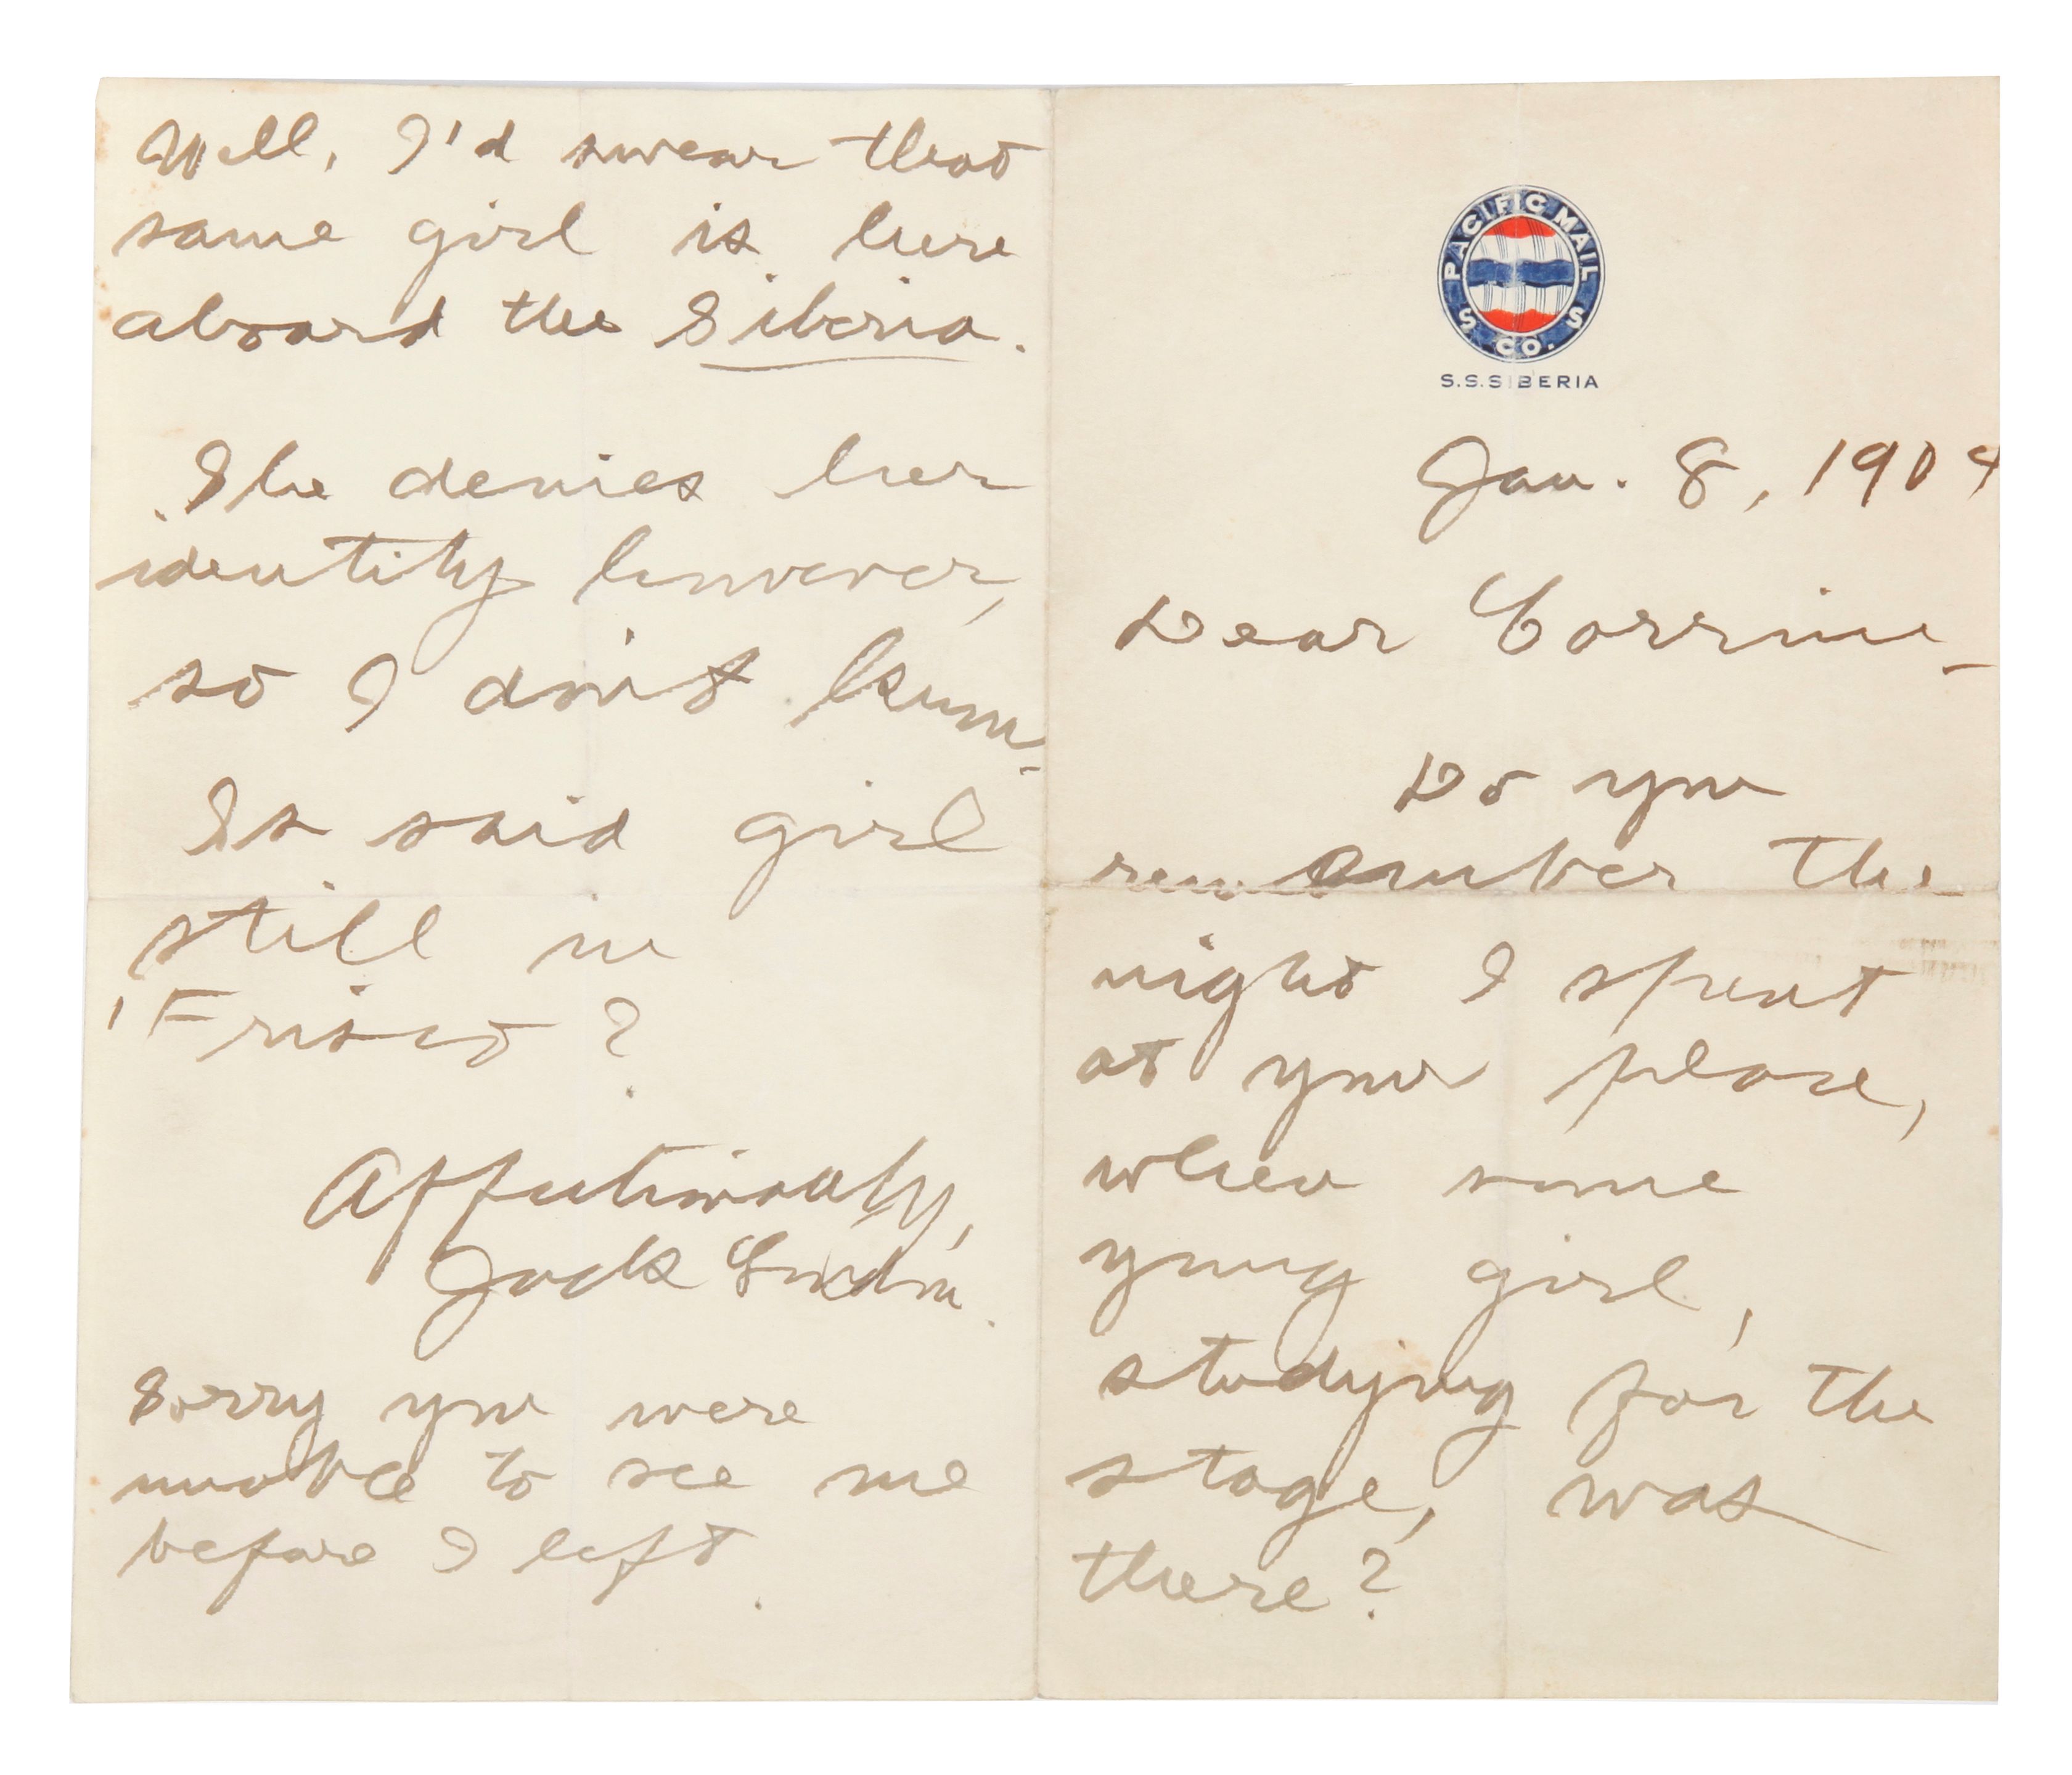 PACIFIC MAIL S S CO.
S.S.SIBERIA
Jan. 8, 1904
Dear Corrine-
Do you
remember the
night I spent
at your place,
when some
young girl,
studying for the
stage, was
there?
Well, I'd swear that
same girl is here
aboard the Siberia.
She denies her
identity however,
so I don't know.
Is said girl
still in
'Frisco?
Affectionately,
Jack London.
Sorry you were
unable to see me
before I left.